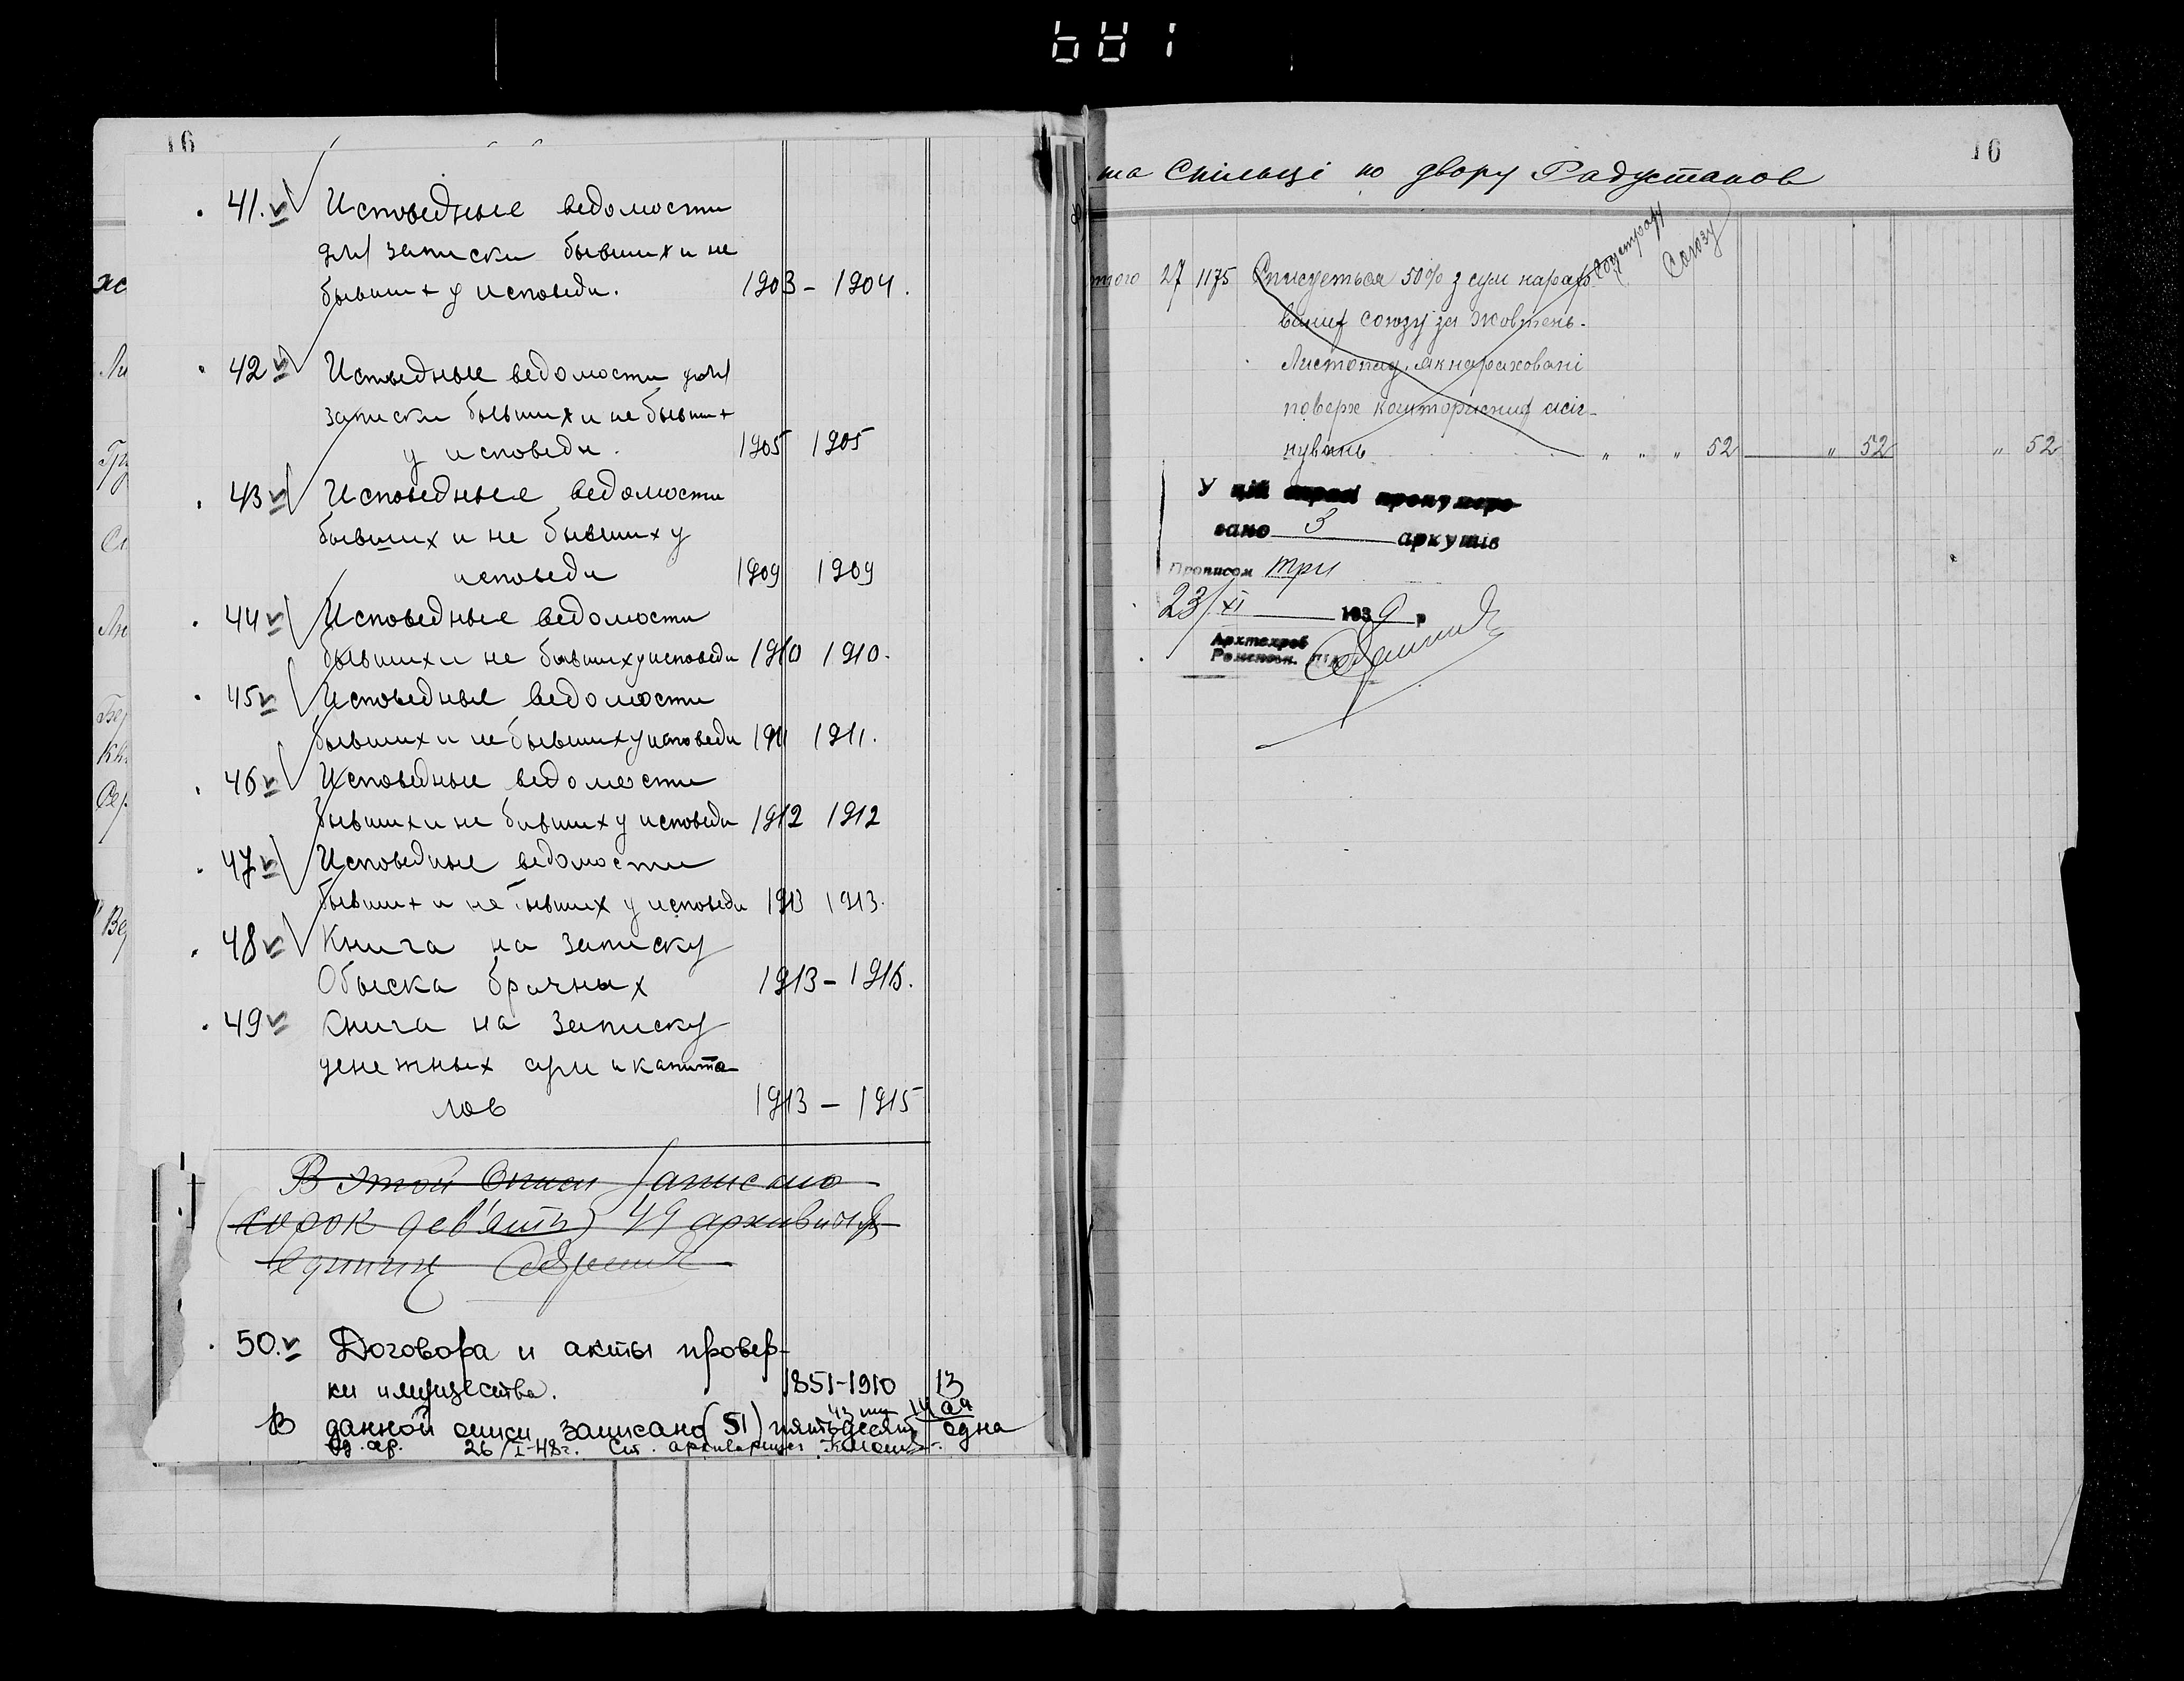 16
41. Исповедные ведомости
для записки бывших и не
бывших у исповеди. 1903 - 1904.
42 Исповедные ведомости для
записки бывших и не бывших
у исповеди. 1905 1905
43 Исповедные ведомости
бывших и не бывших у
исповеди 1909 1909
44 Исповедные ведомости
бывших и не бывших у исповеди 1910 1910.
45 Исповедные ведомости
бывших и не бывших у исповеди 1911 1911.
46 Исповедные ведомости
бывших и не бывших у исповеди 1912 1912
47 Исповедные ведомости
бывших и не бывших у исповеди 1913 1913.
48 Книга на записку
Обыска брачных 1913 - 1916.
49 Книга на записку
денежных сум и капита
лов 1913 - 1915
В этой описи записано
(сорок дев'ять) 49 архивных
единиц
50. Договора и акты провер-
ки имущества. 1851-1910 13
В данной описи записано (51) пятьдесят одна
ед. хр. 26/I-48г. Ст. архивариус
16
та Спільці по двору
27 1175 Списується 50% з сум нарахо-
ваних союзу за Жовтень-
Листопад, як нараховані
поверх кошторисних асіг-
нувань " " " 52 " 52 " 52
Союзу
У цій справі пронумеро
вано 3 аркушів
Прописом три
23/XI 1939 р
Архтехроб